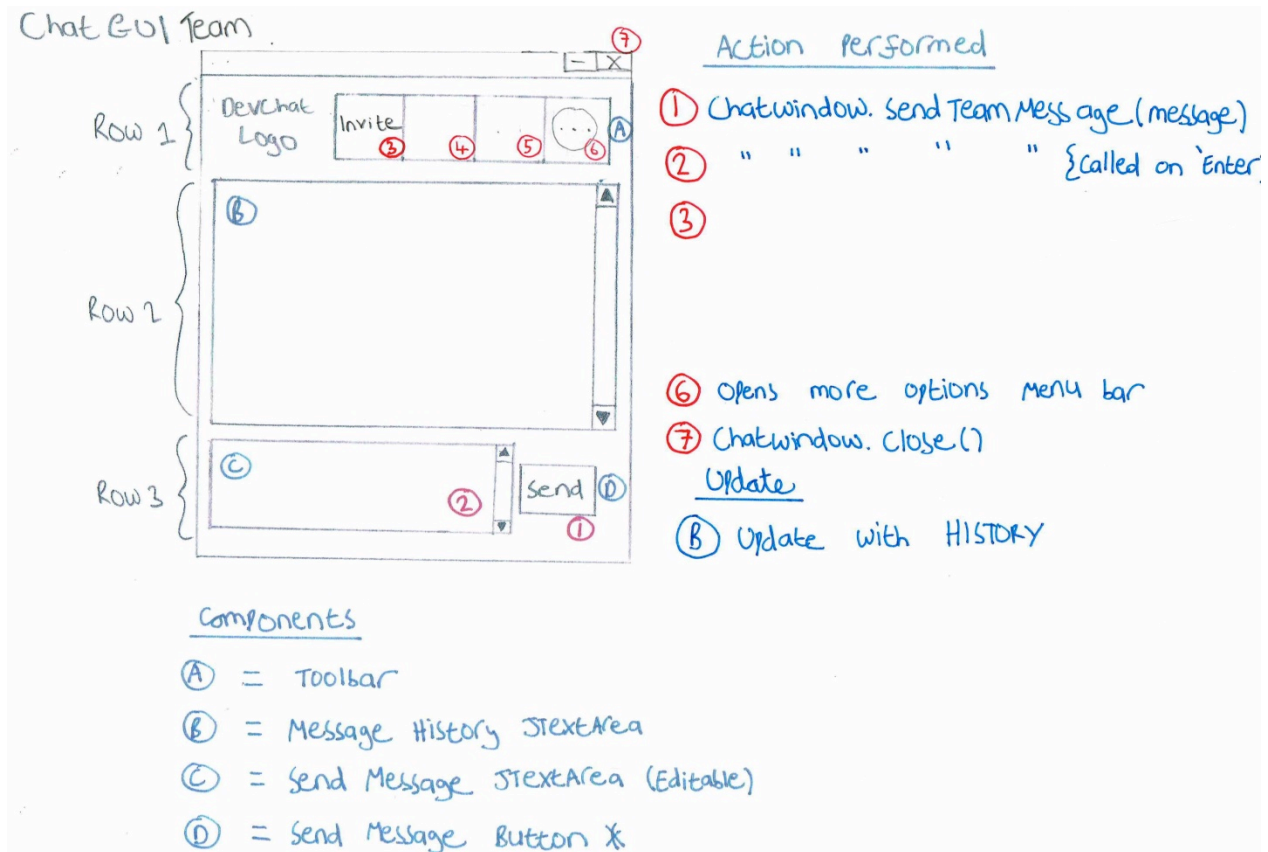 Chat GUI Team
7
- X
Row 1
DevChat
Logo
Invite
3
4
5
...
6
A
Row 2
B
Row 3
C
2
Send
D
1
Action Performed
1 Chatwindow. Send Team Message (message)
2 " " " " " {Called on 'Enter}
3
6 Opens more options menu bar
7 Chatwindow. Close()
Update
B Update with HISTORY
Components
A = Toolbar
B = Message History JTextArea
C = Send Message JTextArea (Editable)
D = Send Message Button *